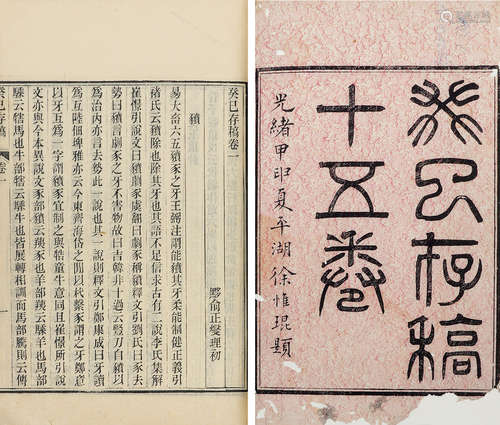 癸巳存稿
十五卷
光緒甲申夏平湖徐惟琨題
癸巳存稿卷一
黟俞正燮理初
豶
易大畜六五豶豕之牙王弼注謂能豶其牙柔能制健正義引
褚氏云豶除也除其牙也其語不足信求古有二說李氏集解
崔憬引說文曰豶劇豕虞翻曰劇豕稱豶釋文引劉氏曰豕去
勢曰豶言劇豕之牙不害物故曰吉韓非十過云豎刀自豶以
為治內亦言去勢此一說也其一說則釋文引鄭康成曰牙讀
為互陸佃埤雅亦云今東齊海岱之閒以杙繫豕謂之牙鄭意
以牙互為一字謂豶豕宜制之與牿童牛意同且崔憬所引說
文亦與今本異說文豕部豶云羠豕也羊部羠云騬羊也馬部
騬云犗馬也牛部犗云騬牛也皆展轉相訓而馬部騰則云傳
癸巳存稿 卷一